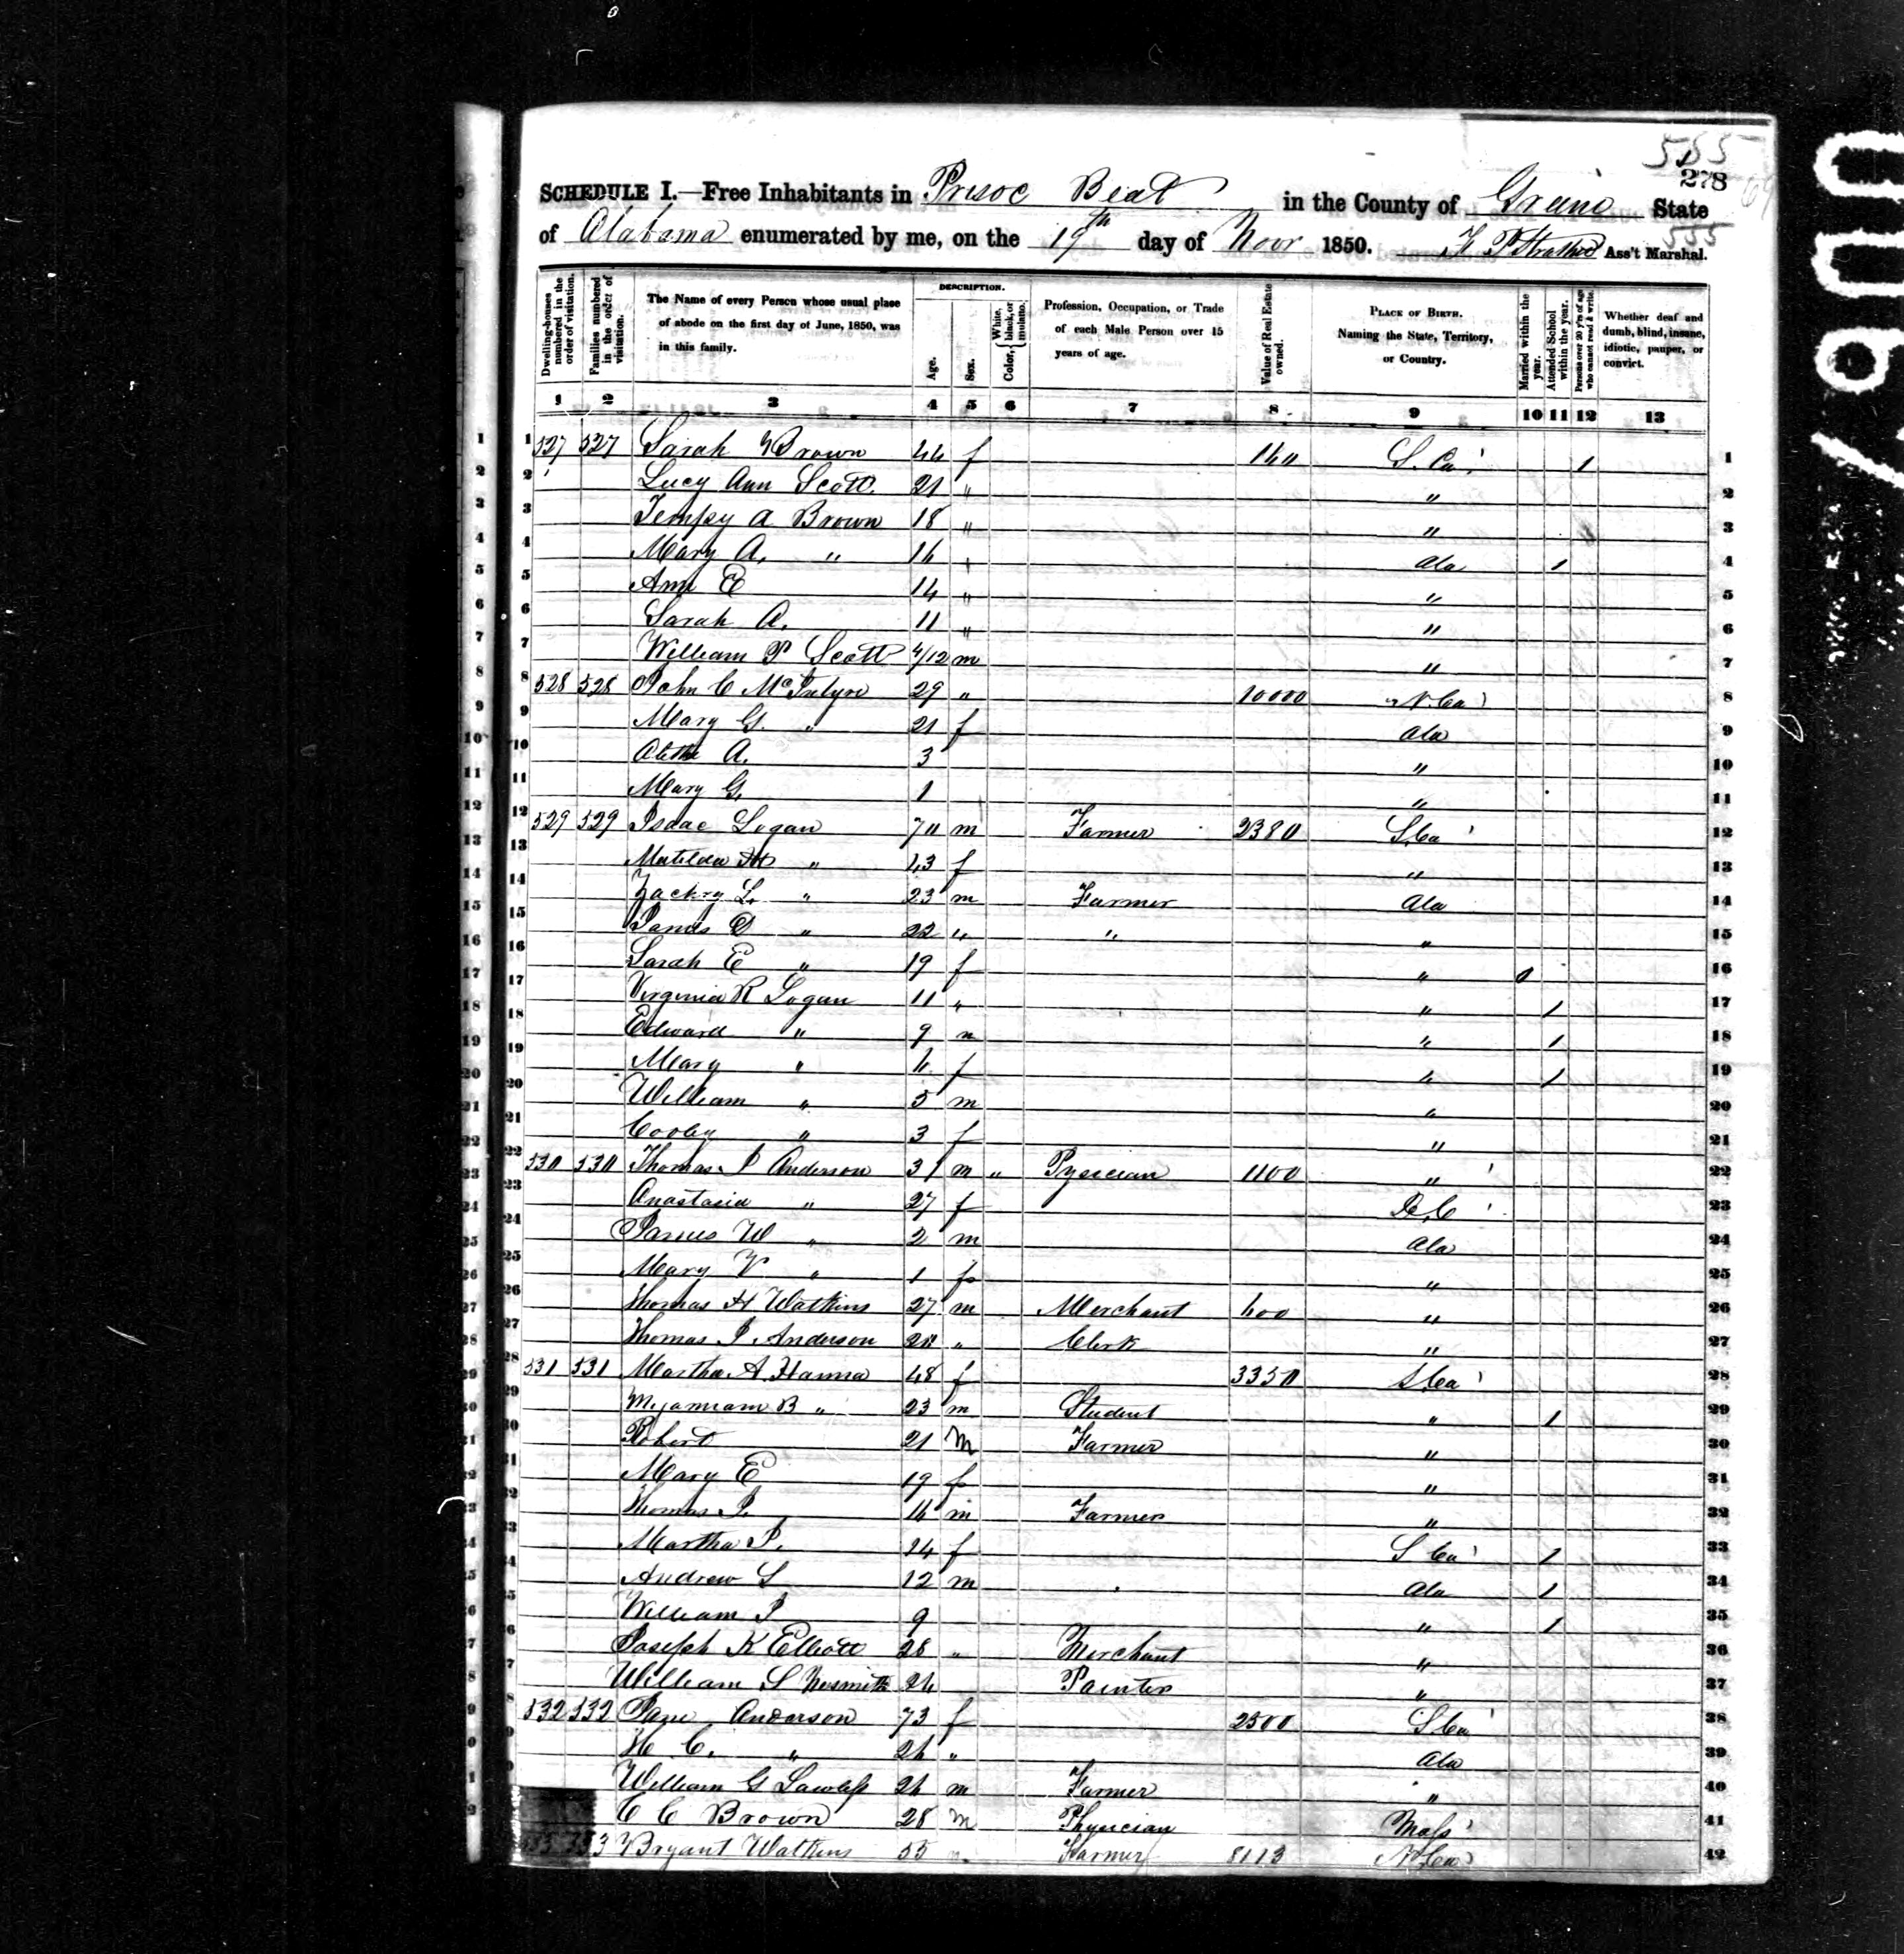 555
278
SCHEDULE I.—Free Inhabitants in Prisoc Beat in the County of Greene State
of Alabama enumerated by me, on the 19th day of Novr 1850. Ass't Marshal.
555
Dwelling-houses numbered in the order of visitation.
Families numbered in the order of visitation.
The Name of every Person whose usual place of abode on the first day of June, 1850, was in this family.
DESCRIPTION.
Age.
Sex.
Color, { White, black, or mulatto.
Profession, Occupation, or Trade of each Male Person over 15 years of age.
Value of Real Estate owned.
PLACE OF BIRTH. Naming the State, Territory, or Country.
Married within the year.
Attended School within the year.
Persons over 20 y'rs of age who cannot read & write.
Whether deaf and dumb, blind, insane, idiotic, pauper, or convict.
1 2 3 4 5 6 7 8 9 10 11 12 13
1 527 527 Sarah Brown 44 f 160 S. Ca 1 1
2 Lucy Ann Scott 21 " " 2
3 Tempsy A Brown 18 " " 3
4 Mary A. " 16 " Ala 1 4
5 Ann E 14 " " 5
6 Sarah A. 11 " " 6
7 William P Scott 4/12 m " 7
8 528 528 John C McIntyre 29 " 10000 N. Ca 8
9 Mary G. " 21 f Ala 9
10 A. 3 " 10
11 Mary G. 1 " 11
12 529 529 Isaac Logan 70 m Farmer 2380 S. Ca 12
13 Matilda " 43 f " 13
14 Zachry L. " 23 m Farmer Ala 14
15 James D " 22 " " " 15
16 Sarah E " 19 f " 16
17 Virginia R Logan 11 " " 1 17
18 Edward " 9 m " 1 18
19 Mary " 6 f " 1 19
20 William " 5 m " 20
21 Cooley " 3 f " 21
22 530 530 Thomas J Anderson 31 m " Pysician 1100 " 22
23 Anastasia " 27 f D,C 23
24 James W " 2 m Ala 24
25 Mary V " 1 f " 25
26 Thomas H Watkins 27 m Merchant 600 " 26
27 Thomas J. Anderson 20 " Clerk " 27
28 531 531 Martha A. Hanna 48 f 3350 S. Ca 28
29 B " 23 m Student " 1 29
30 Robert 21 M Farmer " 30
31 Mary E 19 f " 31
32 Thomas J. 16 m Farmer " 32
33 Martha P. 14 f S Ca 1 33
34 Andrew S 12 m Ala 1 34
35 William J 9 " 1 35
36 Joseph K Elliott 28 " Merchant " 36
37 William S Nesmith 26 Painter " 37
38 532 532 Jane Anderson 73 f 2500 S Ca 38
39 H C. " 26 " Ala 39
40 William G Lawless 26 m Farmer " 40
41 C C Brown 28 m Physician Mass 41
42 533 Bryant Watkins 55 m Farmer 8113 N Ca 42